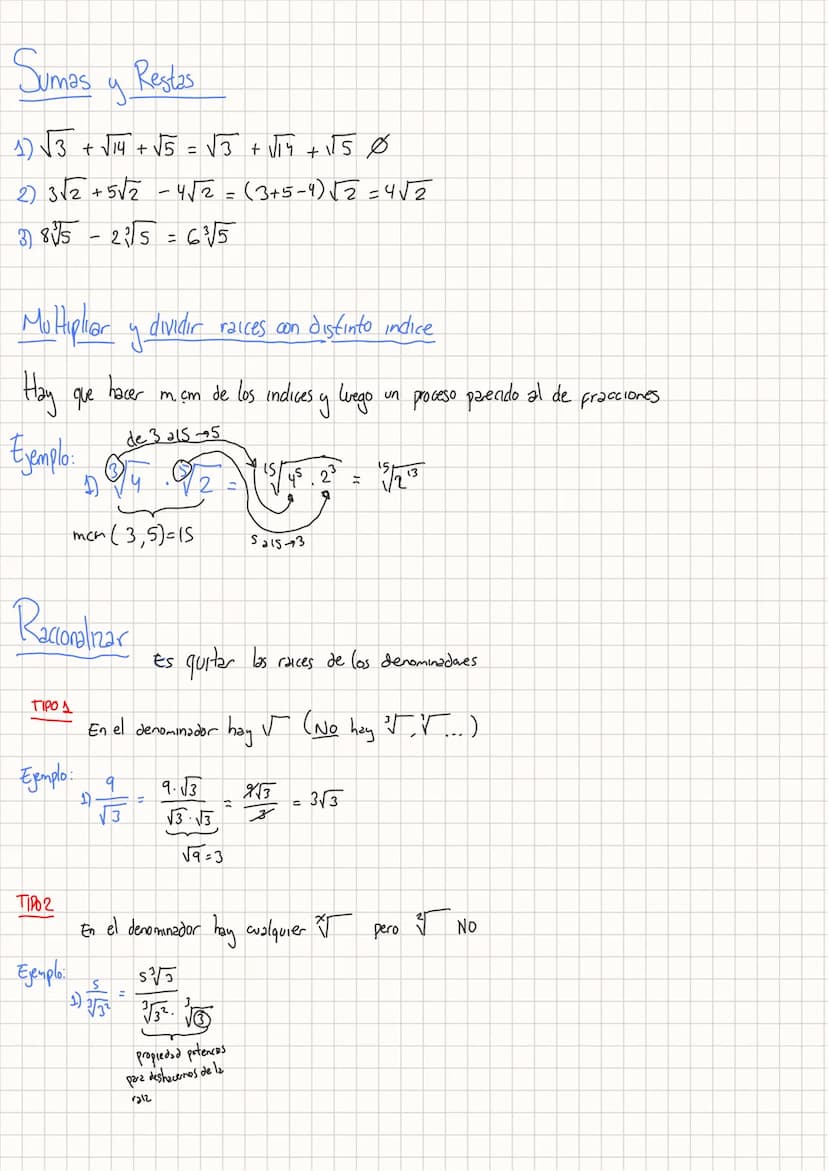 Sumas y Restas
1) √3 + √14 + √5 = √3 + √14 + √5 ∅
2) 3√2 + 5√2 - 4√2 = (3+5-4)√2 = 4√2
3) 8∛5 - 2∛5 = 6∛5
Multipliar y dividir raices con distinto indice
Hay que hacer m.cm de los indices y luego un proceso parecido al de fracciones
de 3 a 15 → 5
Ejemplo:
1) ∛4 · ⁵√2 = ¹⁵√4⁵ · 2³ = ¹⁵√2¹³
mcm (3,5)=15
5 a 15 → 3
Racionalizar
Es quitar las raices de los denominadores
TIPO 1
En el denominador hay √ (No hay ∛, ⁴√ ...)
Ejemplo:
1) 9/√3 = 9·√3/√3·√3 = 9√3/3 = 3√3
√9 = 3
TIPO 2
En el denominador hay cualquier ˣ√ pero ²√ NO
Ejemplo:
1) 5/∛3² = 5∛3/∛3² · ∛3
propiedad potencias
para deshacernos de la
raiz